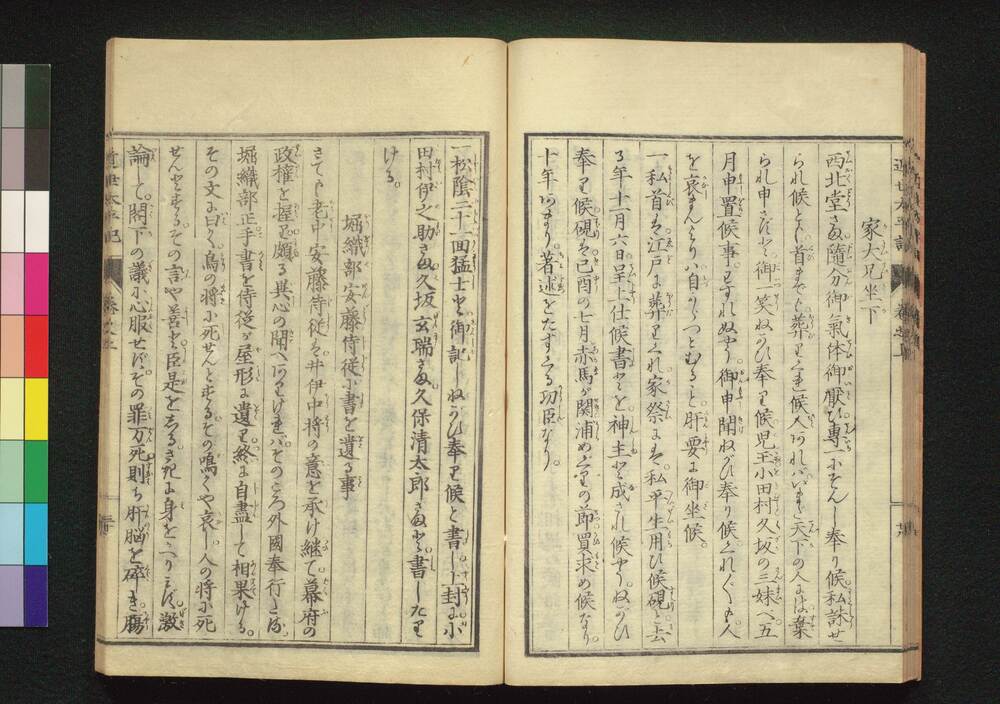 家大兄坐下
西北堂さま随分御氣体御厭ひ専一にぞんじ奉り候私誅せ
られ候とも首までも葬りくれ候人あれバいまだ天下の人には棄
られ申さずと御一笑ねがひ奉り候児玉小田村久坂の三妹へ五
月申置候事わすれぬやう御申聞ねがひ奉り候くれ〲も人
を哀まんよりハ自らつとむること肝要に御坐候。
一私首は江戸に葬りくれ家祭には私平生用ひ候硯と去
る年十一月六日呈上仕候書とを神主と成され候やうねがひ
奉り候硯は己酉の七月赤馬が関浦めぐりの節買求め候なり。
十年あまり著述をたすくる功臣なり。
一松陰二十一回猛士と御記しねがひ奉り候と書し上封に小
田村伊之助さま久坂玄瑞さま久保清太郎さまと書したり
ける。
堀織部安藤侍従に書を遺る事
さても老中安藤侍従は井伊中将の意を承け継て幕府の
政権を握り頗る異心の聞へありけれバそのころ外國奉行たる
堀織部正手書を侍従が屋形に遺り終に自盡して相果ける。
その文に曰く鳥の将に死せんとするその鳴くや哀し人の将に死
せんとするその言や善と臣是をしるさきに身をかへりミず激
論して閣下の議に心服せずその罪万死則ち肝脳を碎き腸